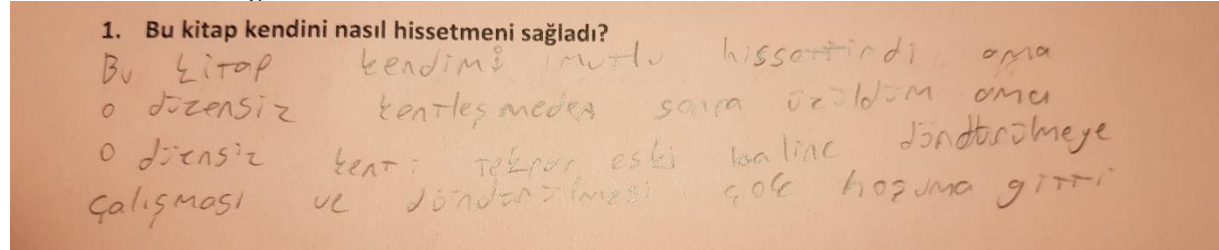 1. Bu kitap kendini nasıl hissetmeni sağladı?
Bu kitap kendimi mutlu hissettirdi ama
o düzensiz kentleşmeden sonra üzüldüm ama
o düensiz kenti tekrar eski haline döndürülmeye
çalışması ve döndürülmesi çok hoşuma gitti